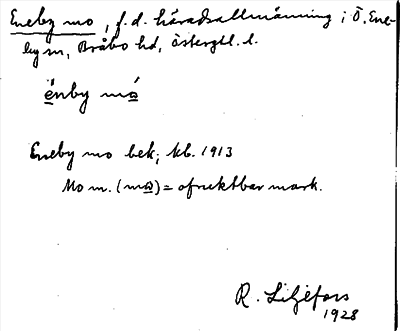 Eneby mo, f.d. häradsallmänning i Ö. Ene-
by sn, Bråbo hd, Östergtl. l.
ènby mó
Eneby mo bek, kb. 1913
Mo m. (mo) = ofruktbar mark.
R. Liljefors
1928